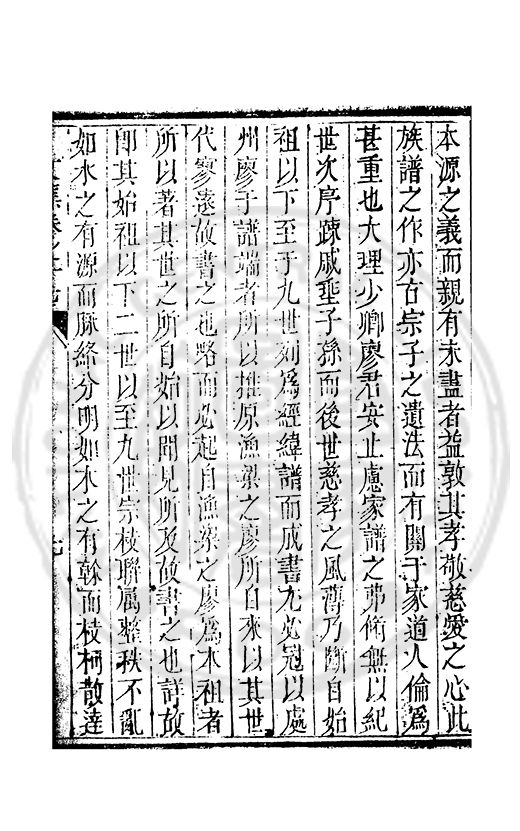 本源之義而親有未盡者益敦其孝敬慈愛之心此
族譜之作亦古宗子之遺法而有關于家道人倫爲
甚重也大理少卿廖君安止慮家譜之弗脩無以紀
世次序踈戚垂子孫而後世慈孝之風薄乃斷自始
祖以下至于九世列爲經緯譜而成書尤必冠以處
州廖子譜端者所以推原漁梁之廖所自來以其世
代寥遠故書之也略而必起自漁梁之廖爲本祖者
所以著其世之所自始以聞見所及故書之也詳故
即其始祖以下二世以至九世宗枝聯屬整秩不亂
如水之有源而脉絡分明如木之有榦而枝柯散達